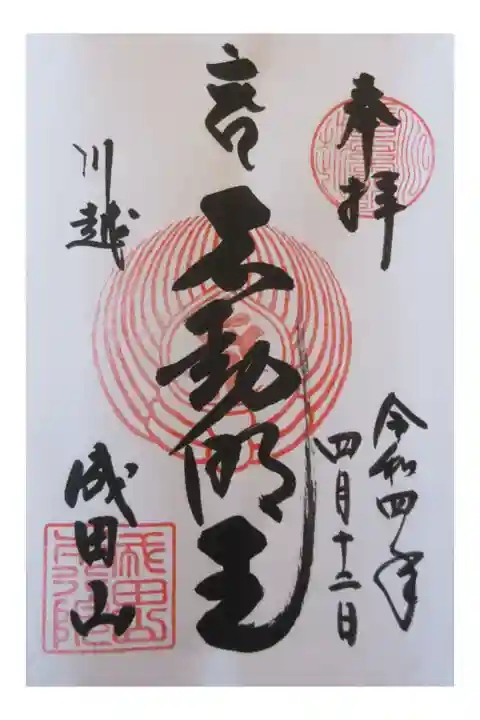 奉拝
令和四年
四月十二日
不動明王
川越
成田山